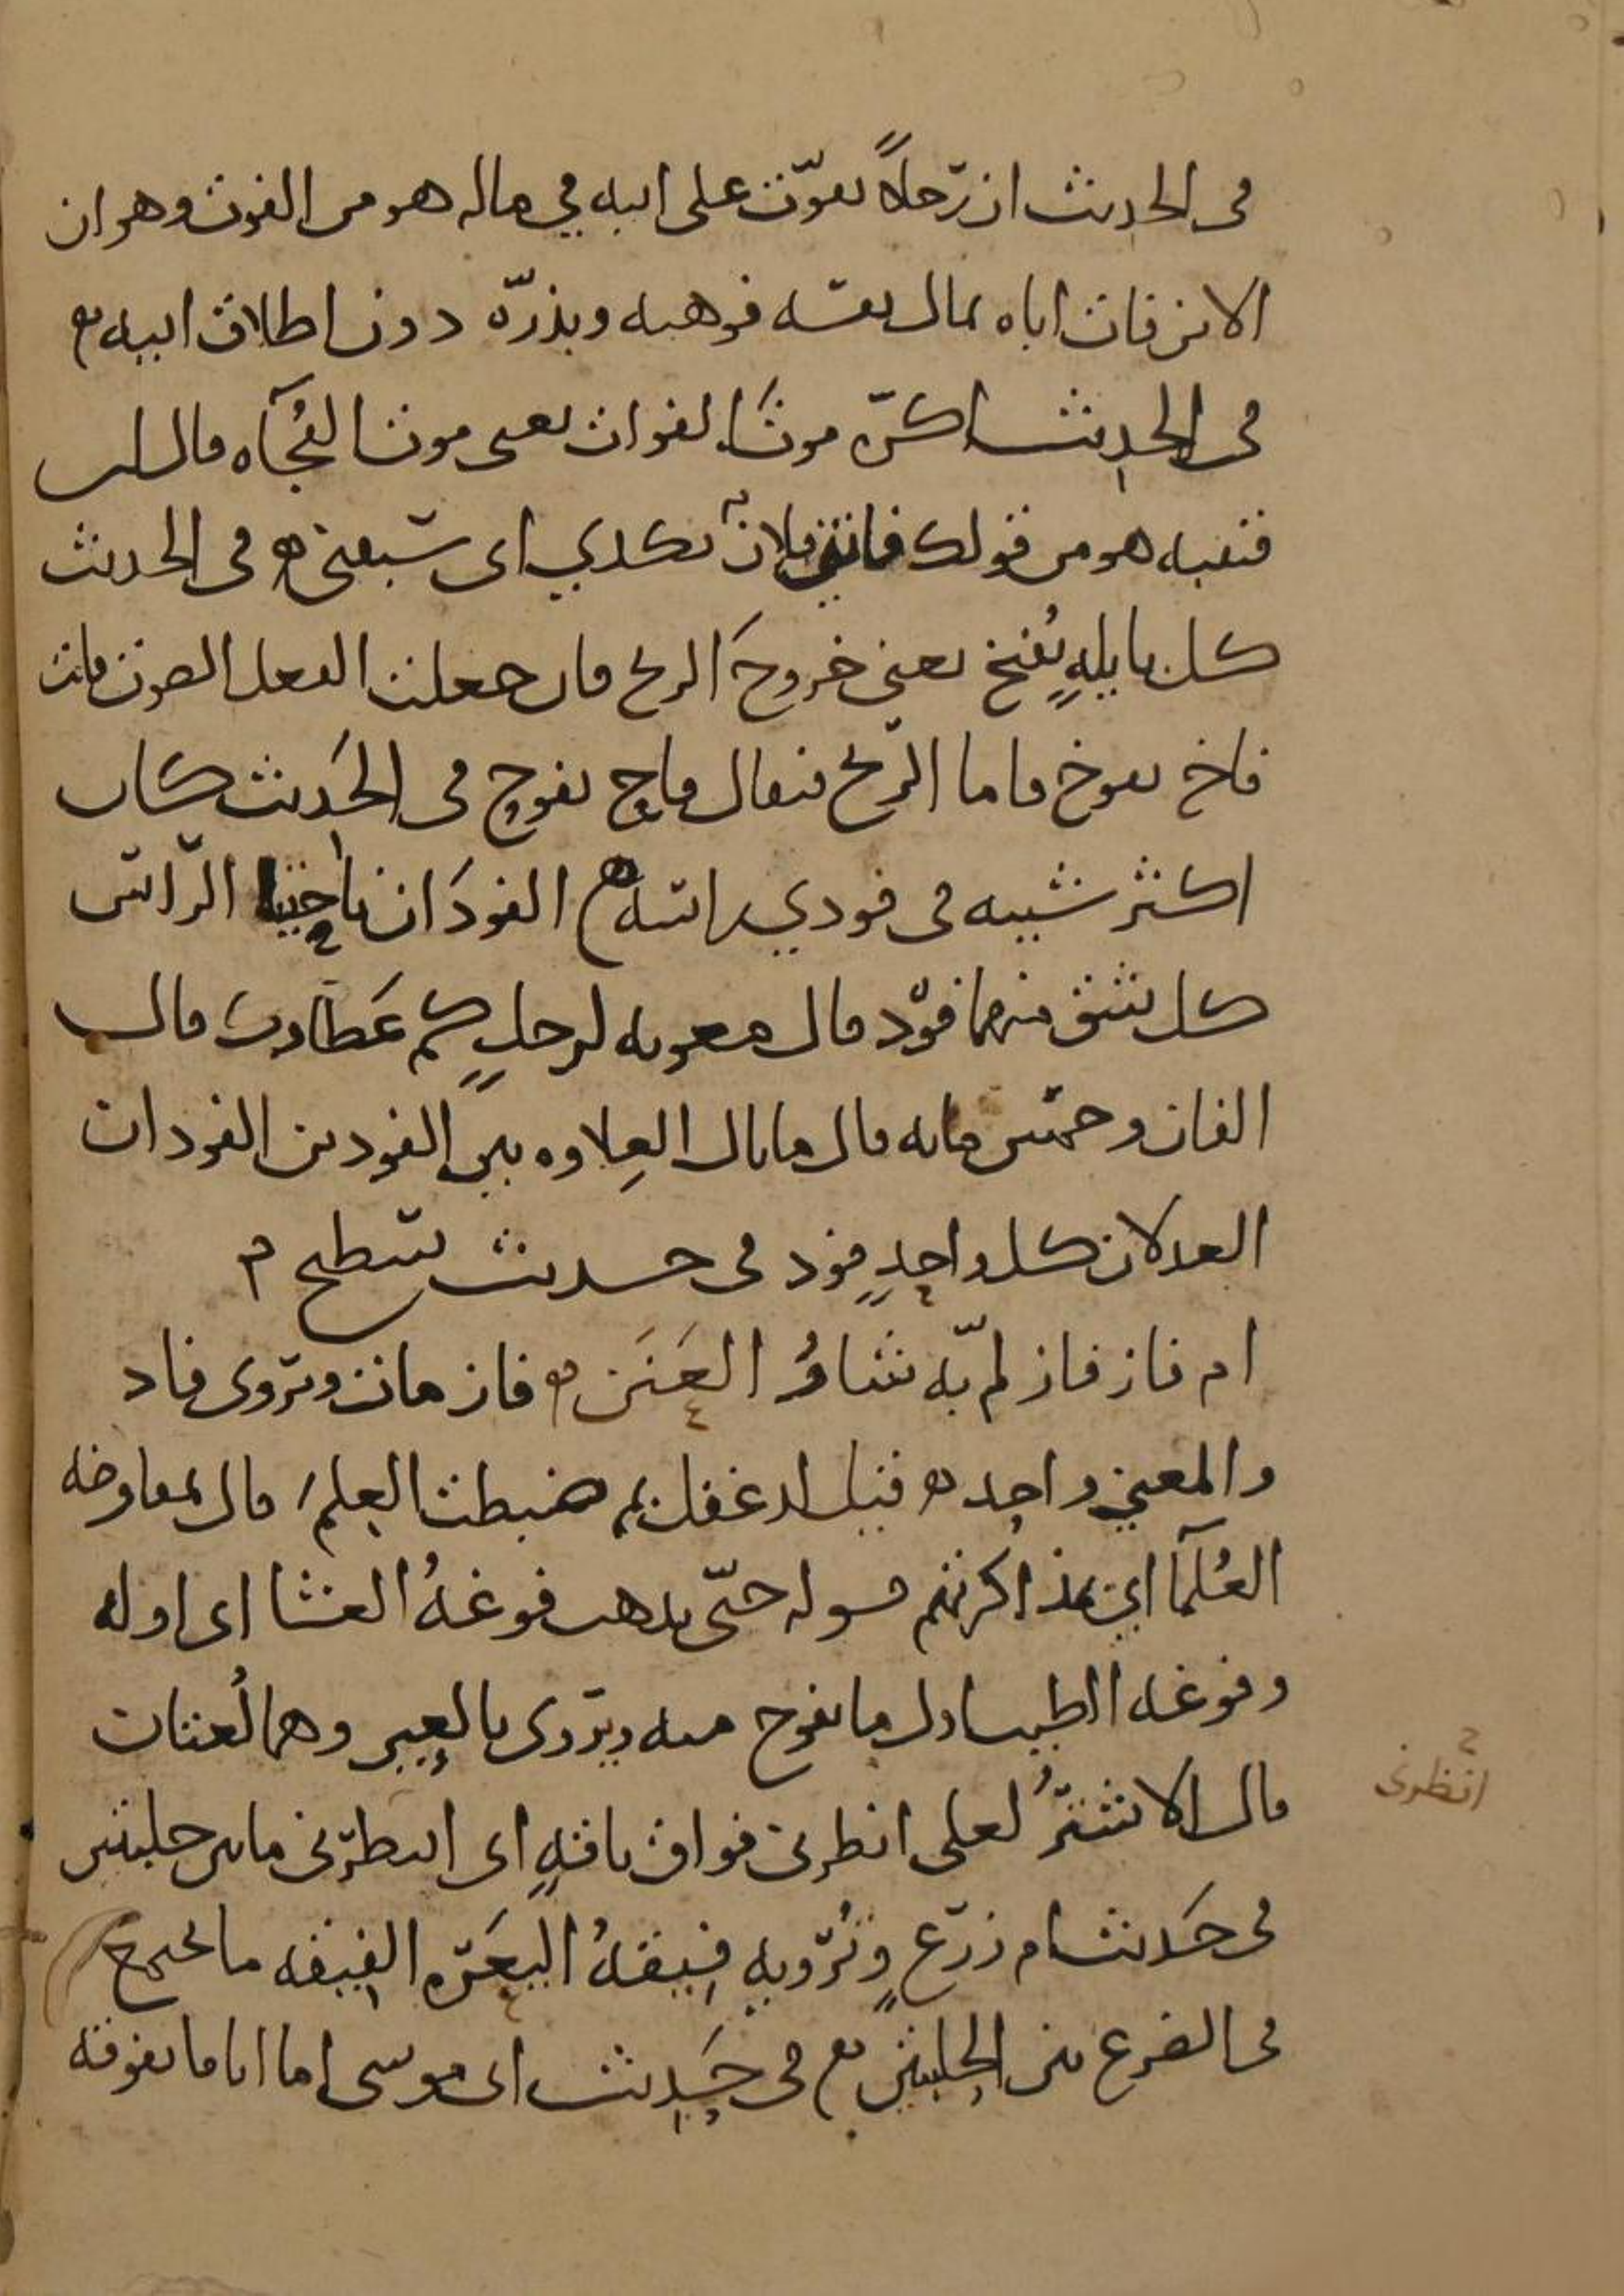 فى الحديث ان رجلاً تفوّت على ابيه في ماله هو من الفوت وهو ان
الابن فات اباه بمال نفسه فوهبه وبذرّه دون اطلاق ابيه
فى الحديث اكرَه موتَ الفوات يعنى موت الفُجَآه قال ابن
قتيبه هو من قولك فاتني فلانٌ بكذي اى سبقني فى الحديث
كل بايلهٍ تُفيخ يعني خروجَ الريح فان جعلت الفعل للصوت قلت
فاخ يفوخ فاما الرّيح فيقال فاح يفوح فى الحَديث كان
اكثر شيبه فى فودي راسه الفودَان ناحيتا الرّاس
كل شق منهما فوْد قال معويه لرجلٍ كم عَطاوك قال
الفان وخمس مايه قال ما بال العِلاوه بين الفودين الفودان
العدلان كل واحدٍ فود فى حديث سطيح
ام فاز فاز لمّ به شاوُ العَنَن فاز مات ويروى فاد
والمعني واحد قيل لدغفل بم ضبطت العلمَ قال بمفاوضه
العُلمآ اي بمذاكرتهم قوله حتّى يذهب فوعهُ العشا اى اوله
وفوغه الطيب اول ما يفوح منه ويروى بالعين وهما لُغتان
قال الاشترُ لعلى انظرنى فواق ناقهٍ اى انتظرنى ما بين حلبتين
انظرنى
فى حَديث ام زرع وتُرويه فيقهُ اليَعَره الفيقه ما يجتمع
فى الضرع بين الحلبتين فى حَديث ابى موسى اما انا فاتفوقه